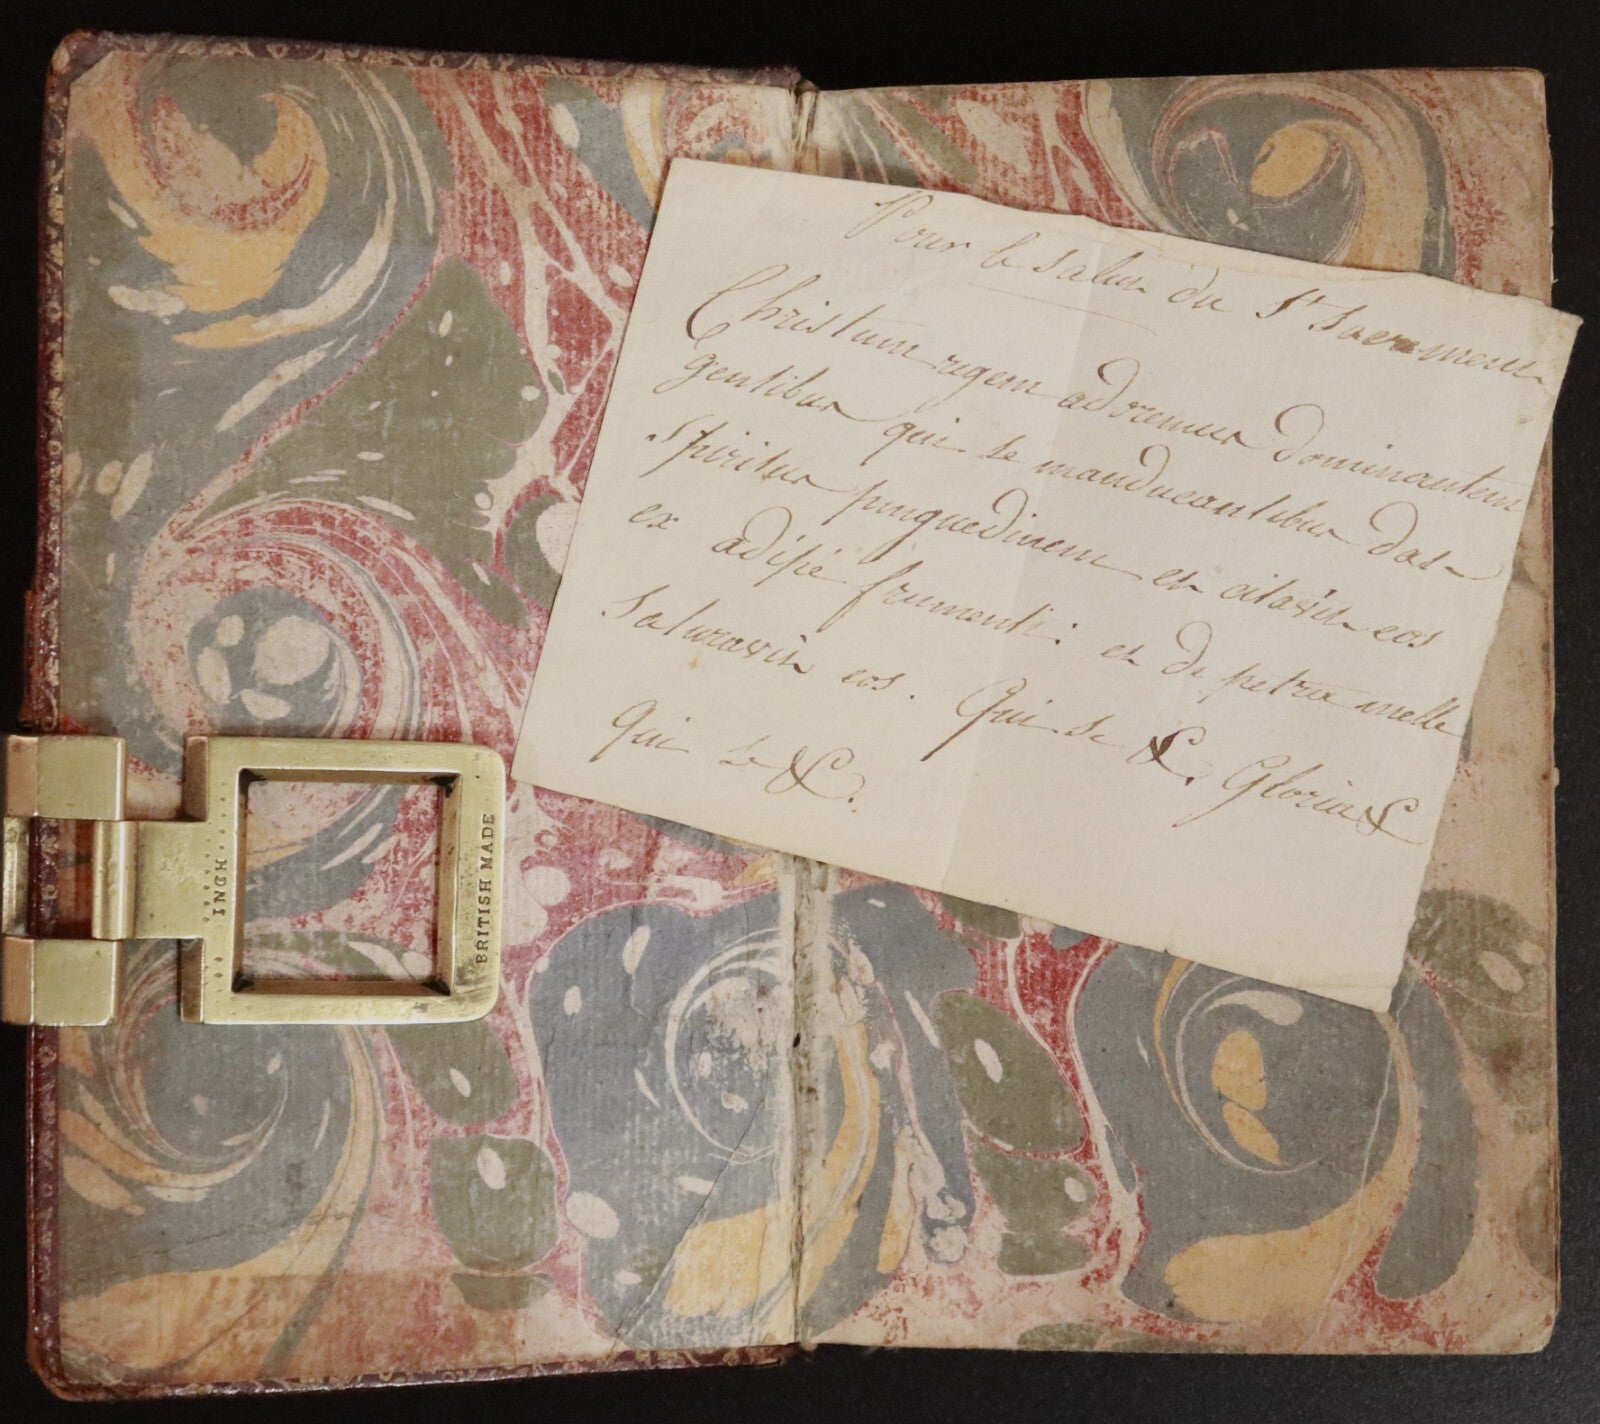 Pour le salut du St Sacrement
Christum regem adoremus dominantem
gentibus qui se manducantibus dat
spiritus pinguedinem et cibavit eos
ex adipe frumenti: et de petra melle
saturavit eos. Qui se &. Gloria &
Qui se &.
INCH
BRITISH MADE